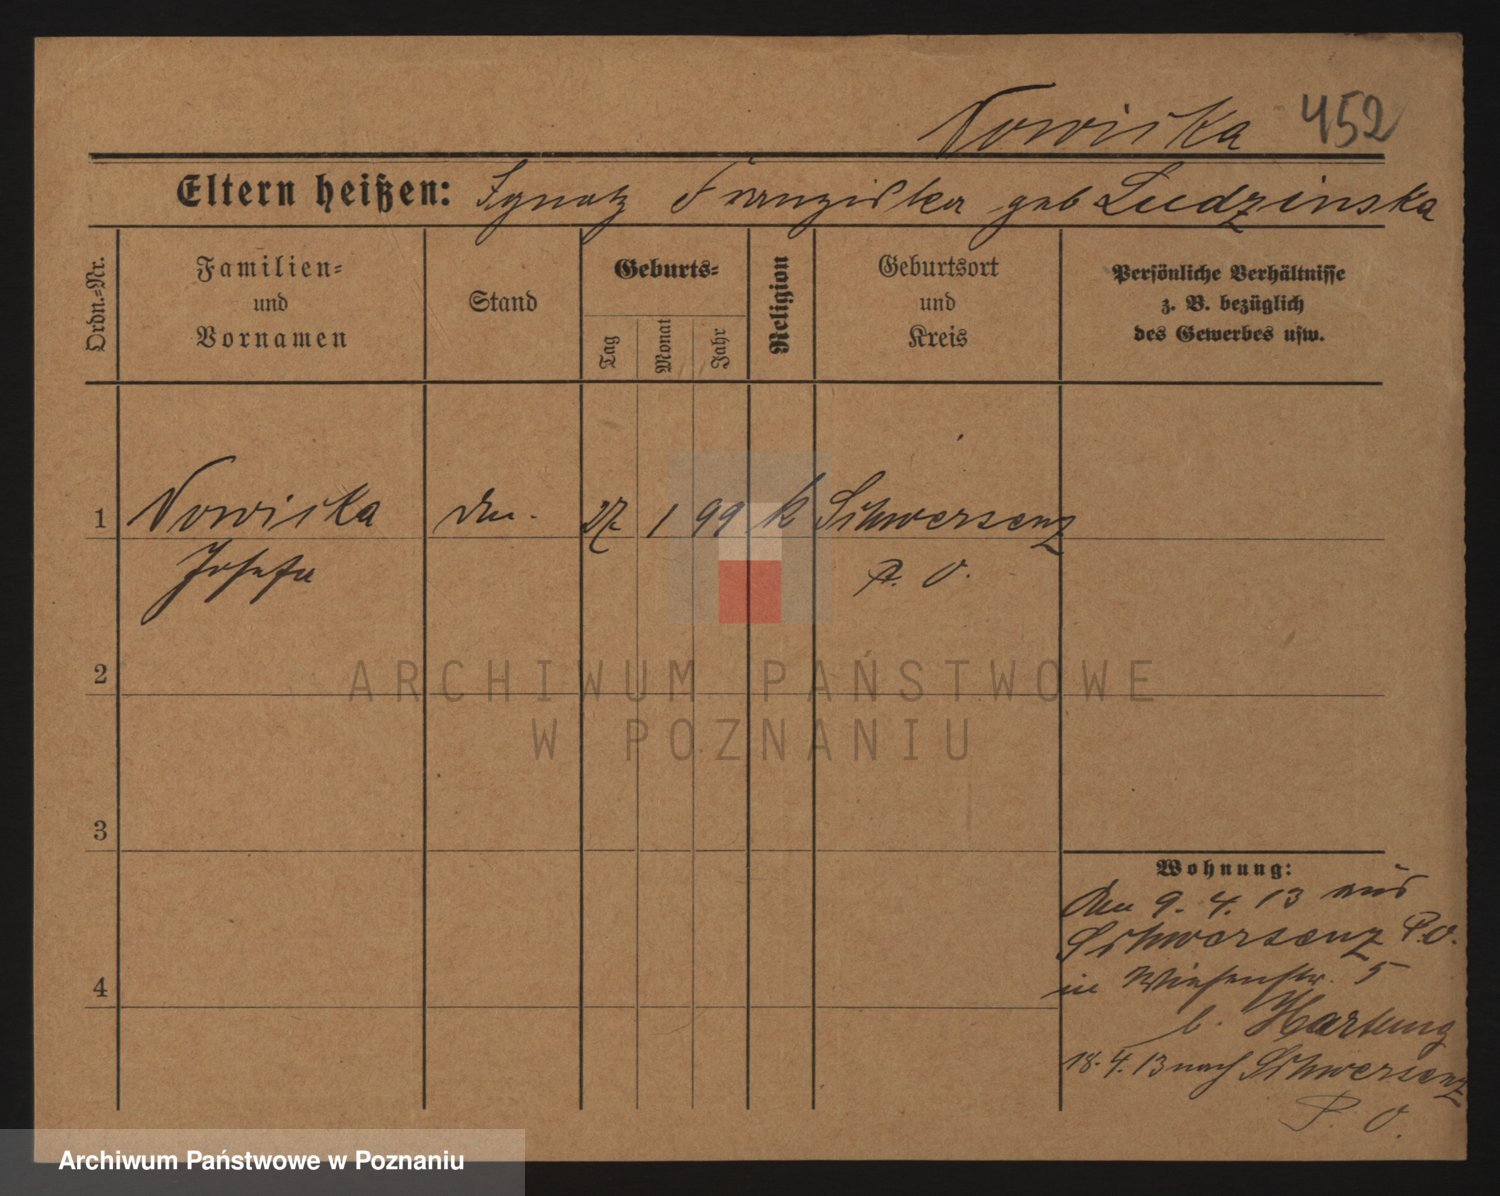 Nowicka 452
Eltern heißen: Ignatz Franziska geb Ludzinska
Ordn.-Nr.
Familien-
und
Vornamen
Stand
Geburts-
Tag
Monat
Jahr
Religion
Geburtsort
und
Kreis
Persönliche Verhältnisse
z. B. bezüglich
des Gewerbes usw.
1 Nowicka 27 1 99 k Schwersenz
Josefa P. O.
2
3
4
Wohnung:
Den 9. 4. 13 aus
Schwersenz P. O.
in Wiesenstr. 5
b. Hartung
18. 4. 13 nach Schwersenz
P. O.
ARCHIWUM PAŃSTWOWE
W POZNANIU
Archiwum Państwowe w Poznaniu